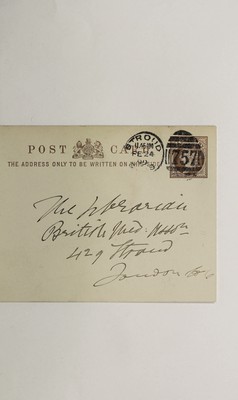 POST CARD
THE ADDRESS ONLY TO BE WRITTEN ON
STROUD
FE 24
757
The Librarian
British Med. Assn
429 Strand
London